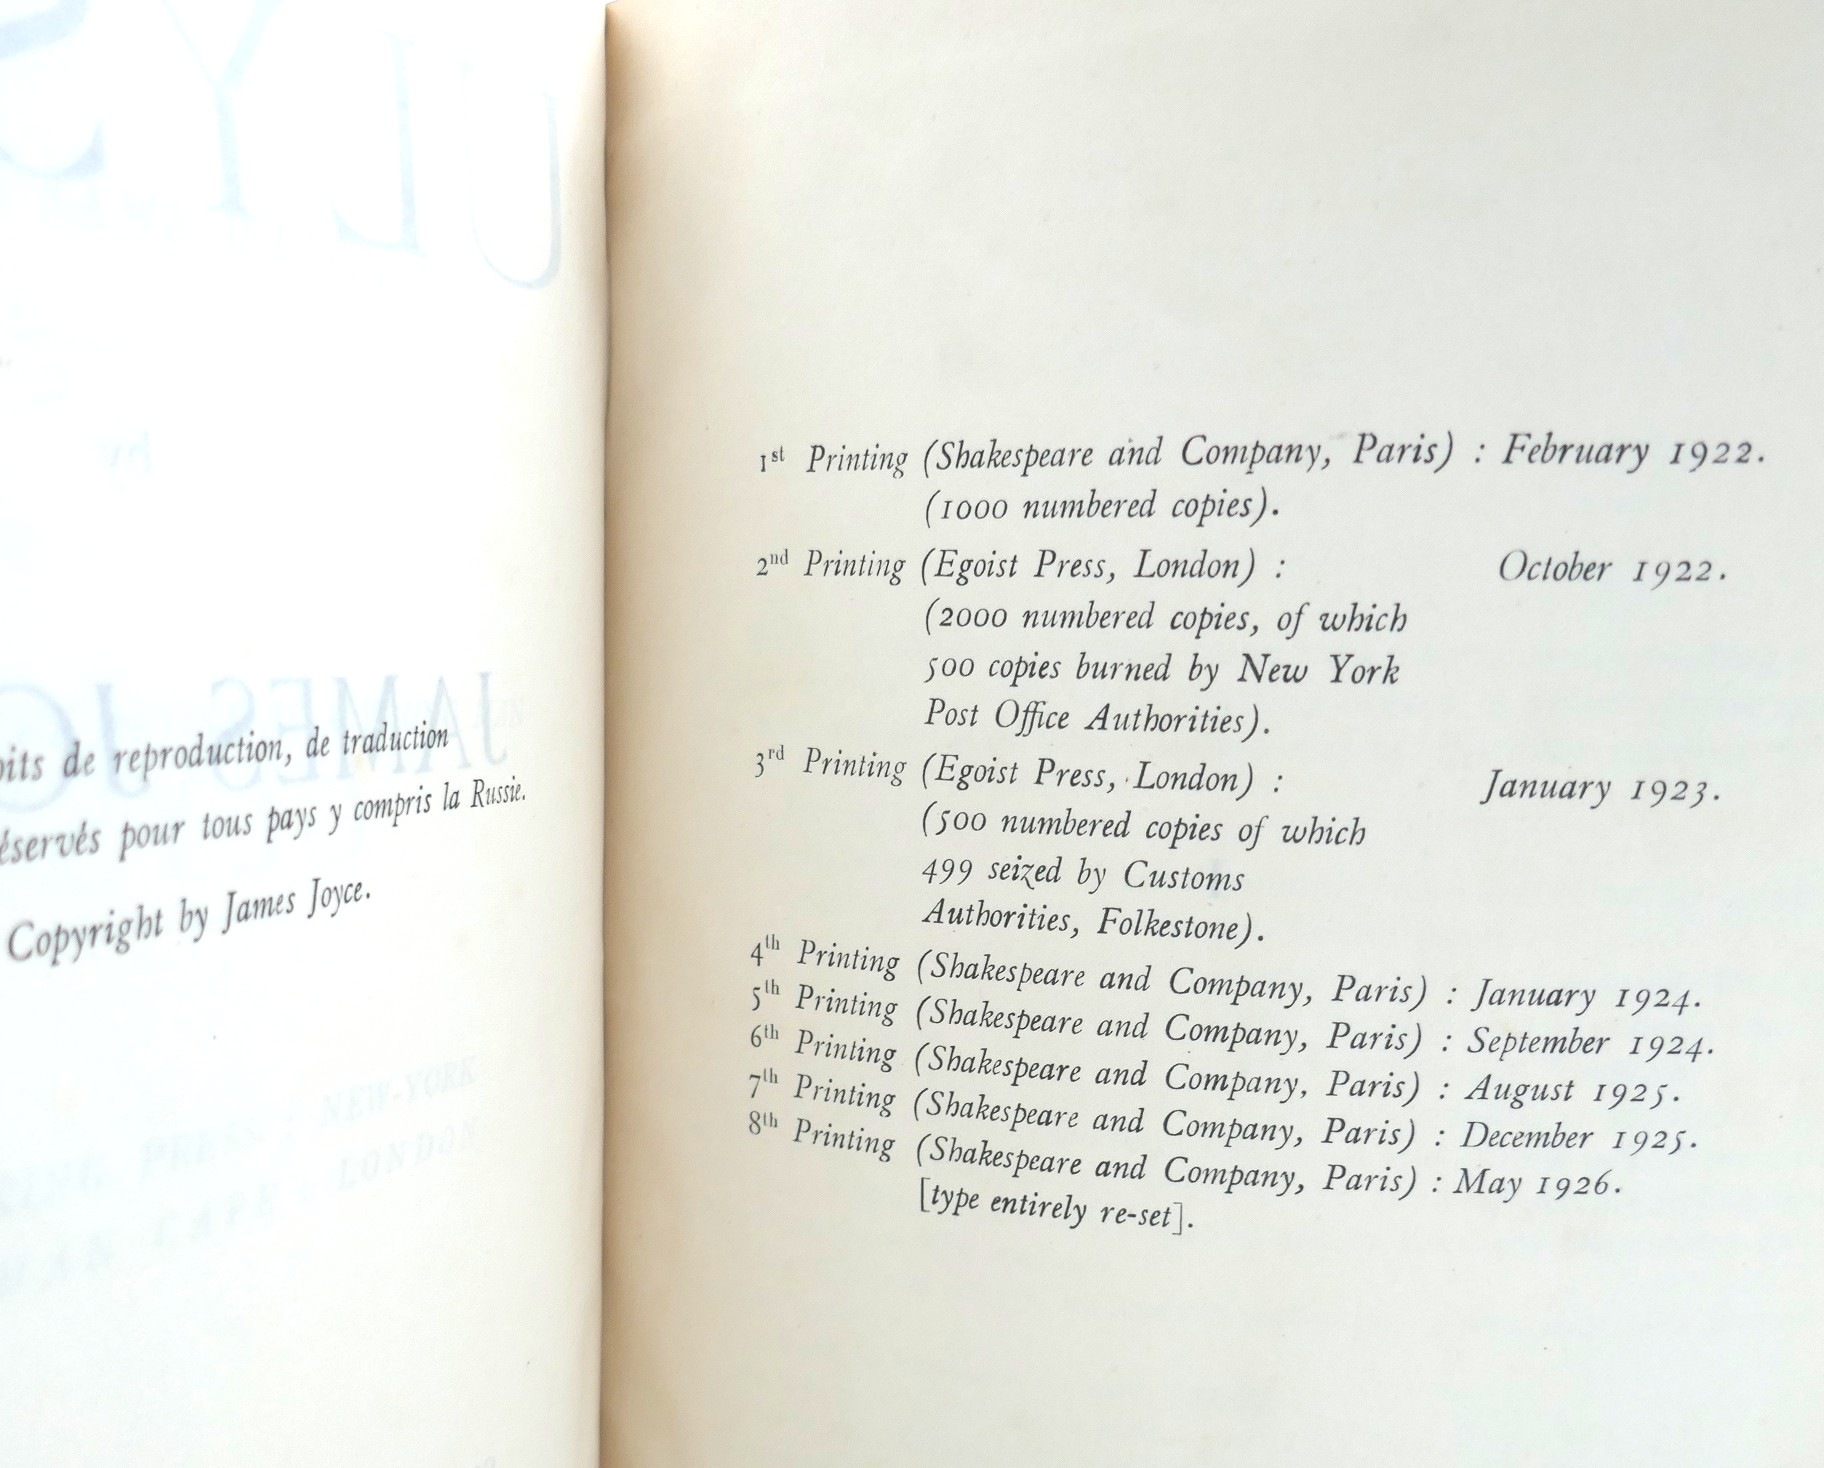 ULYS
by
JAMES JO
de reproduction, de traduction
pour tous pays y compris la Russie.
Copyright by James Joyce.
NEW-YORK
LONDON
1st Printing (Shakespeare and Company, Paris) : February 1922.
(1000 numbered copies).
2nd Printing (Egoist Press, London) : October 1922.
(2000 numbered copies, of which
500 copies burned by New York
Post Office Authorities).
3rd Printing (Egoist Press, London) : January 1923.
(500 numbered copies of which
499 seized by Customs
Authorities, Folkestone).
4th Printing (Shakespeare and Company, Paris) : January 1924.
5th Printing (Shakespeare and Company, Paris) : September 1924.
6th Printing (Shakespeare and Company, Paris) : August 1925.
7th Printing (Shakespeare and Company, Paris) : December 1925.
8th Printing (Shakespeare and Company, Paris) : May 1926.
[type entirely re-set].